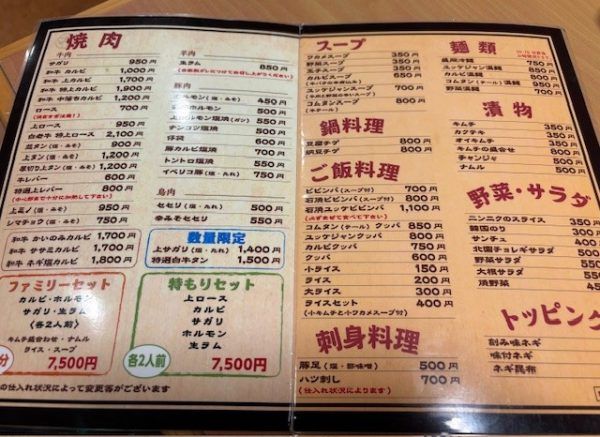 焼肉
牛肉
サガリ 950円
和牛 カルビ 1,000円
和牛 上カルビ 1,700円
和牛 特上カルビ 1,900円
和牛 中落ちカルビ 1,200円
ロース 700円
上ロース 950円
白老牛 特上ロース 2,100円
塩タン(塩・みそ) 900円
上タン(塩・みそ) 1,200円
厚切り上タン(塩・みそ) 1,200円
牛レバー 600円
特選上レバー 800円
(中心部まで十分に加熱して下さい)
上ミノ(塩・みそ) 950円
シマチョウ(塩・みそ) 750円
和牛 かいのみカルビ 1,700円
和牛 ササミカルビ 1,700円
和牛 ネギ塩カルビ 1,800円
羊肉
生ラム 850円
豚肉
ホルモン(塩・みそ) 450円
上ホルモン塩焼(ガツ) 550円
チンコツ塩焼 550円
豚カルビ塩焼 700円
トントロ塩焼 700円
イベリコ豚(塩・みそ)
鳥肉
セセリ(塩・たれ) 550円
辛みそセセリ 550円
数量限定
上サガリ(塩・たれ) 1,400円
特選白牛タン 1,500円
ファミリーセット
カルビ・ホルモン
サガリ・生ラム
〈各2人前〉
キムチ盛合わせ・ナムル
ライス・スープ
分 7,500円
特もりセット
上ロース
カルビ
サガリ
ホルモン
生ラム
各2人前 7,500円
の仕入れ状況によって変更等がございます
スープ
ワカメスープ 350円
野菜スープ 350円
玉子スープ 350円
カルビスープ
ユッケジャンスープ 700円
コムタンスープ 800円
鍋料理
豆腐チゲ 800円
納豆チゲ 800円
ご飯料理
ビビンバ(スープ付) 700円
石焼ビビンバ(スープ付) 800円
石焼ユッケビビンバ 1,100円
コムタン(テール)クッパ 850円
ユッケジャンクッパ 800円
カルビクッパ 750円
クッパ 500円
小ライス 150円
ライス 200円
大ライス 300円
ライスセット 400円
(小キムチと小ワカメスープ付)
刺身料理
豚足(塩・酢味噌) 500円
ハツ刺し 700円
(仕入れ状況によります)
麺類
盛岡冷麺 750円
ユッケジャン温麺 800円
カルビ温麺 800円
コムタン(テール)温麺 850円
野菜温麺 700円
漬物
キムチ
カクテキ
オイキムチ
キムチの盛合せ
チャンジャ
ナムル
野菜・サラダ
ニンニクのスライス
韓国のり
サンチュ
北園チョレギサラダ
野菜サラダ
大根サラダ
焼野菜
トッピング
刻み味ネギ
味付ネギ
ネギ昆布